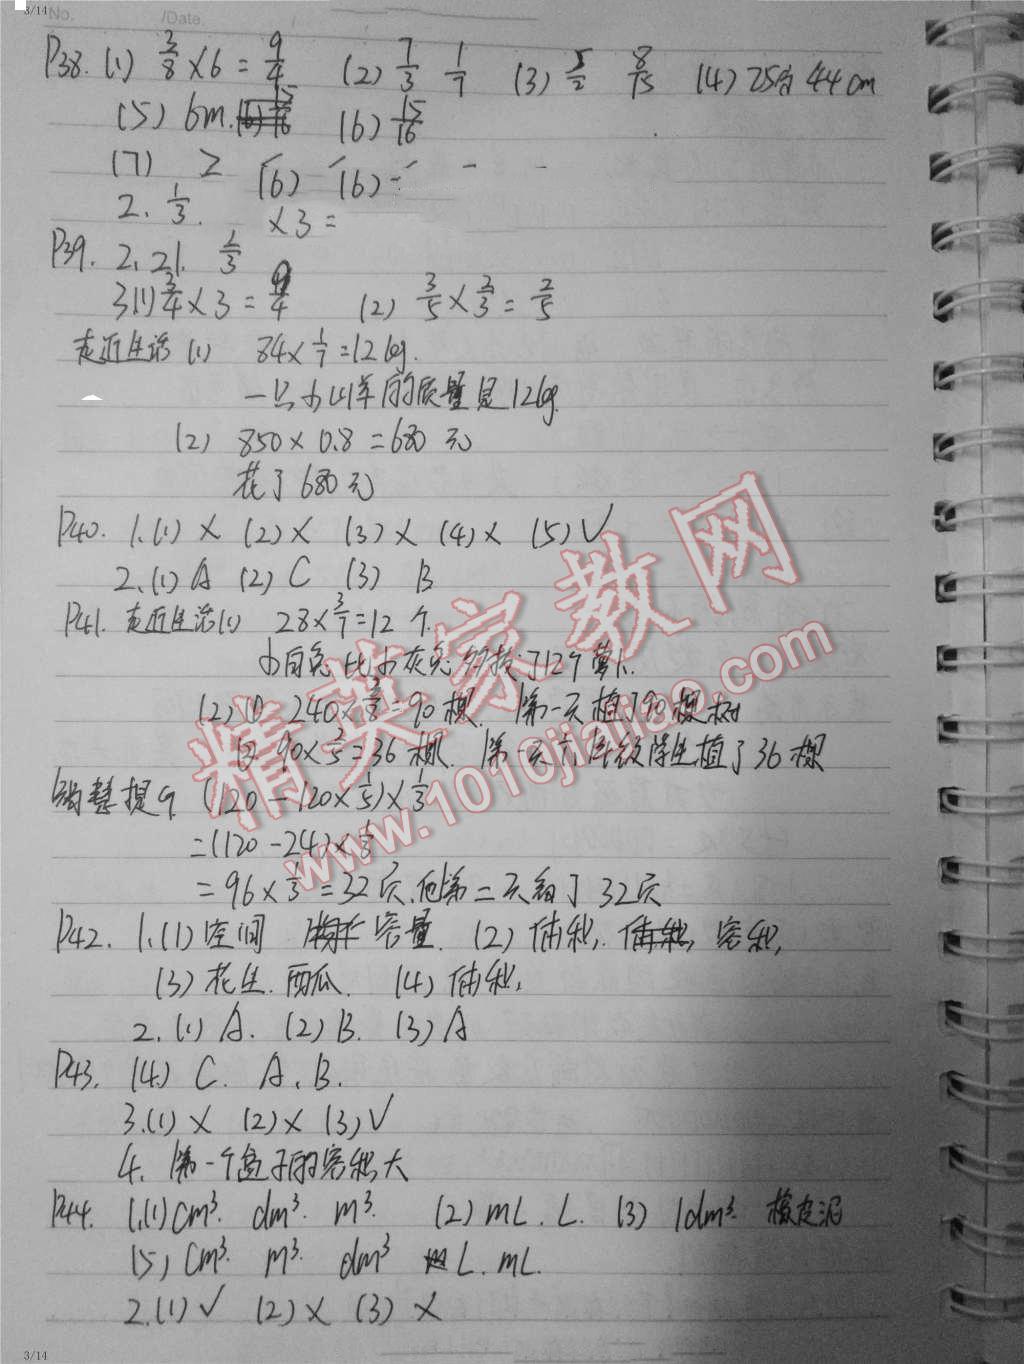 3/14
No.
/Date.
P38. (1) 3/8 × 6 = 9/4 (2) 7/3 1/7 (3) 5/2 8/15 (4) 25% 44cm
(5) 6m. (6) 15/16
(7) 2 (6) (6)
2. 1/3. ×3=
P39. 2. 21. 2/3
3(1) 3/4 × 3 = 9/4 (2) 3/5 × 2/3 = 2/5
走近生活 (1) 84 × 1/7 = 12kg.
一只小山羊的质量是12kg.
(2) 850 × 0.8 = 680元
花了680元
P40. 1.(1) × (2) × (3) × (4) × (5) √
2.(1) A (2) C (3) B
P41. 走近生活(1) 28 × 3/7 = 12个.
小白兔比小灰兔多拔了12个萝卜.
(2) ① 240 × 3/8 = 90棵. 第一天植了90棵树
② 90 × 2/5 = 36棵. 第一天六年级学生植了36棵
智慧提升 (120 - 120 × 1/5) × 1/3
= (120 - 24) × 1/3
= 96 × 1/3 = 32页. 他第二天看了32页
P42. 1.(1) 空间 容量. (2) 体积. 容积.
(3) 花生. 西瓜. (4) 体积.
2.(1) A. (2) B. (3) A
P43. (4) C. A. B.
3.(1) × (2) × (3) √
4. 第一个盒子的容积大
P44. 1.(1) cm³. dm³. m³. (2) mL. L. (3) 1dm³. 橡皮泥
(5) cm³. m³. dm³ L. mL.
2.(1) √ (2) × (3) ×
精英家教网
www.1010jiajiao.com
3/14